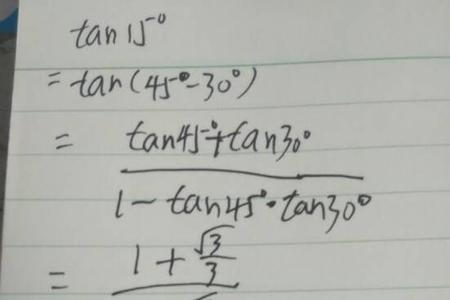 tan15°
=tan(45°-30°)
= tan45°+tan30°
1-tan45°·tan30°
= 1+√3/3